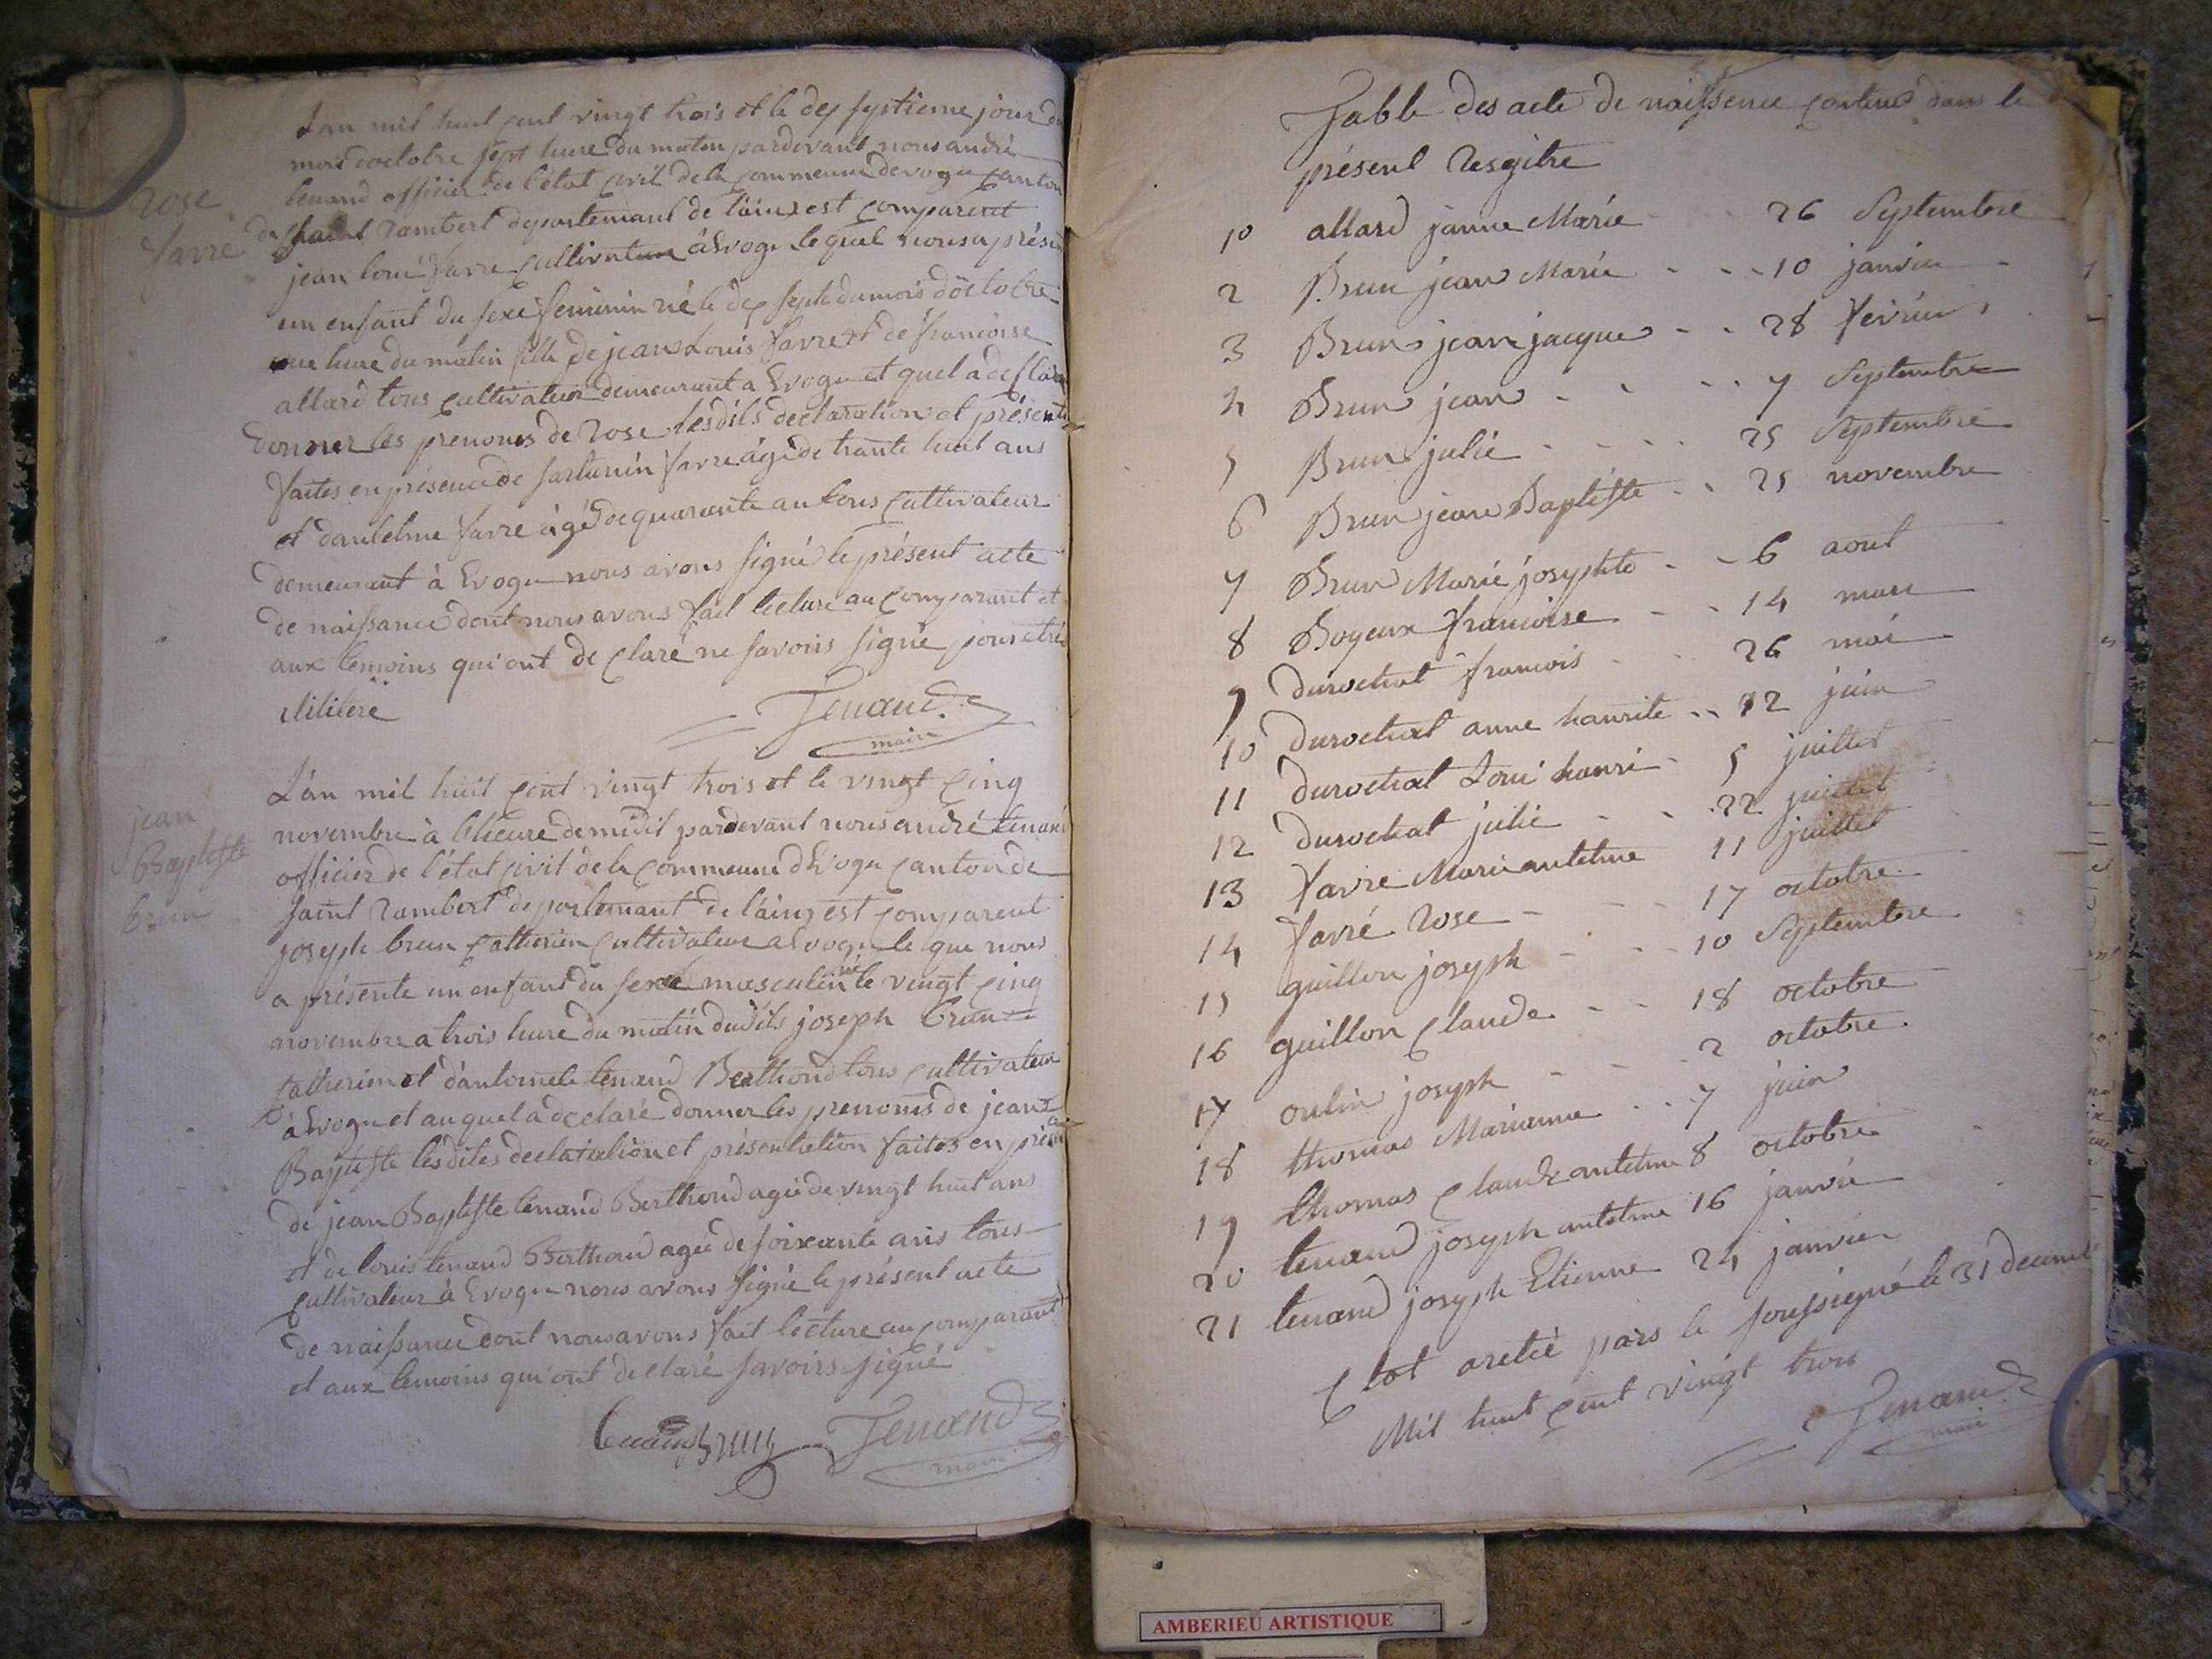 rose
favre
Lan mil huit cent vingt trois et le dex septieme jour du
mois doctobre sept hure du matin pardevant nous andré
tenand officier de l'état civil de la commune devogu canton
de saint rambert departemant de l'ain est comparent
jean loui favre cultivateur à Evogu lequel nous a présen
un enfant du sexe feminin né le dex septe du mois d'octobre
une hure du matin fille de jean Louis favre et de francoise
allard tous cultivateur demeurant a Evogu et quel a declaré
donner les prenoms de rose lesdits declaration et présent
faites en présence de saturnin favre âgé de trante huit ans
et dantelme favre âgé de quarante an tous cultivateur
demeurant à Evogu nous avons signé le présent acte
de naissance dont nous avons fait lecture au comparant et
aux temoins qui ont declaré ne savoirs signé
illiteré
Tenand
maire
jean
Baptiste
brun
L'an mil huit cent vingt trois et le vingt cinq
novembre à l'heure de midit pardevant nous andré tenand
officier de l'état civil de la commune d'Evogu canton de
saint rambert departemant de l'ain est comparent
joseph brun catherin cultivateur a Evogu le que nous
a présente un enfant du sexe masculin né le vingt cinq
novembre a trois hure du matin dudits joseph brun
catherin et d'antoinete tenand Berthond tous cultivateur
à Evogu et auquel a declaré donner les prenoms de jean
Baptiste lesdites declaration et présentation faites en présan
de jean Baptiste tenand Berthond agée de vingt huit ans
et de louis tenand Berthond agée de soixante ans tous
cultivateur à Evogu nous avons signé le présent acte
de naissance dont nous avons fait lecture au comparant
et aux temoins qui ont declaré savoirs signé
brun Tenand
maire
Table des acte de naissence contenu dans le
présent resgitre
10 allard janne Marie - - 26 Septembre
2 Brun jean Marie - - - 10 janvier
3 Brun jean jacque - - 28 fevrier
4 Brun jean - - - - 7 Septembre
5 Brun julie - - - - 25 Septembre
6 Brun jean Baptiste - - 25 novembre
7 Brun Marie josephte - - 6 aout
8 Boyeux francoise - - 14 mars
9 durochat francois - - 26 mai
10 durochat anne hanrite - - 12 juin
11 durochat Loui hanri - 5 juillet
12 durochat julie - - 22 juillet
13 favre Marie antelme 11 juillet
14 favré rose - - - 17 octobre
15 guillon joseph - - - 10 Septembre
16 guillon claude - - 18 octobre
17 oulin joseph - - - 2 octobre
18 thomas Marianne - - 7 juin
19 thomas claude antelme 8 octobre
20 tenand joseph antelme 16 janvié
21 tenand joseph Etienne 24 janvier
Clot aretté pars le soussigné le 31 decembre
Mil huit cent vingt trois
Tenand
maire
AMBERIEU ARTISTIQUE